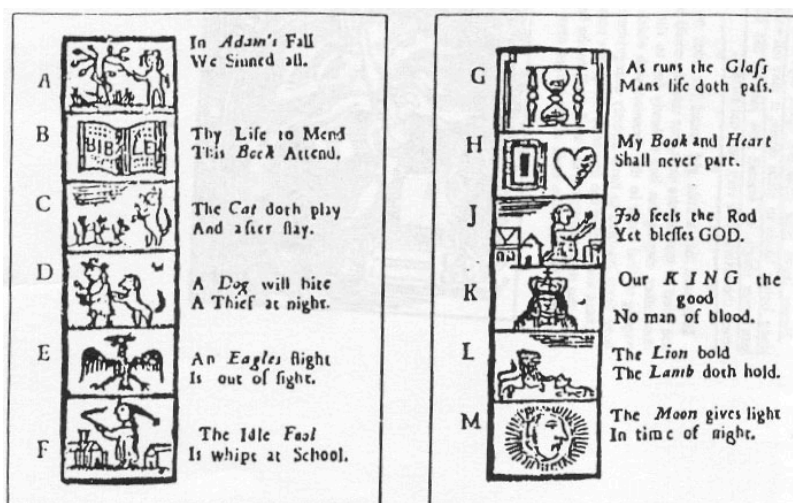 A
In Adam's Fall
We Sinned all.
B
BIBLE
Thy Life to Mend
This Book Attend.
C
The Cat doth play
And after ſlay.
D
A Dog will bite
A Thief at night.
E
An Eagles flight
Is out of ſight.
F
The Idle Fool
Is whipt at School.
G
As runs the Glaſs
Mans life doth paſs.
H
My Book and Heart
Shall never part.
J
Job feels the Rod
Yet bleſſes GOD.
K
Our KING the
good
No man of blood.
L
The Lion bold
The Lamb doth hold.
M
The Moon gives light
In time of night.